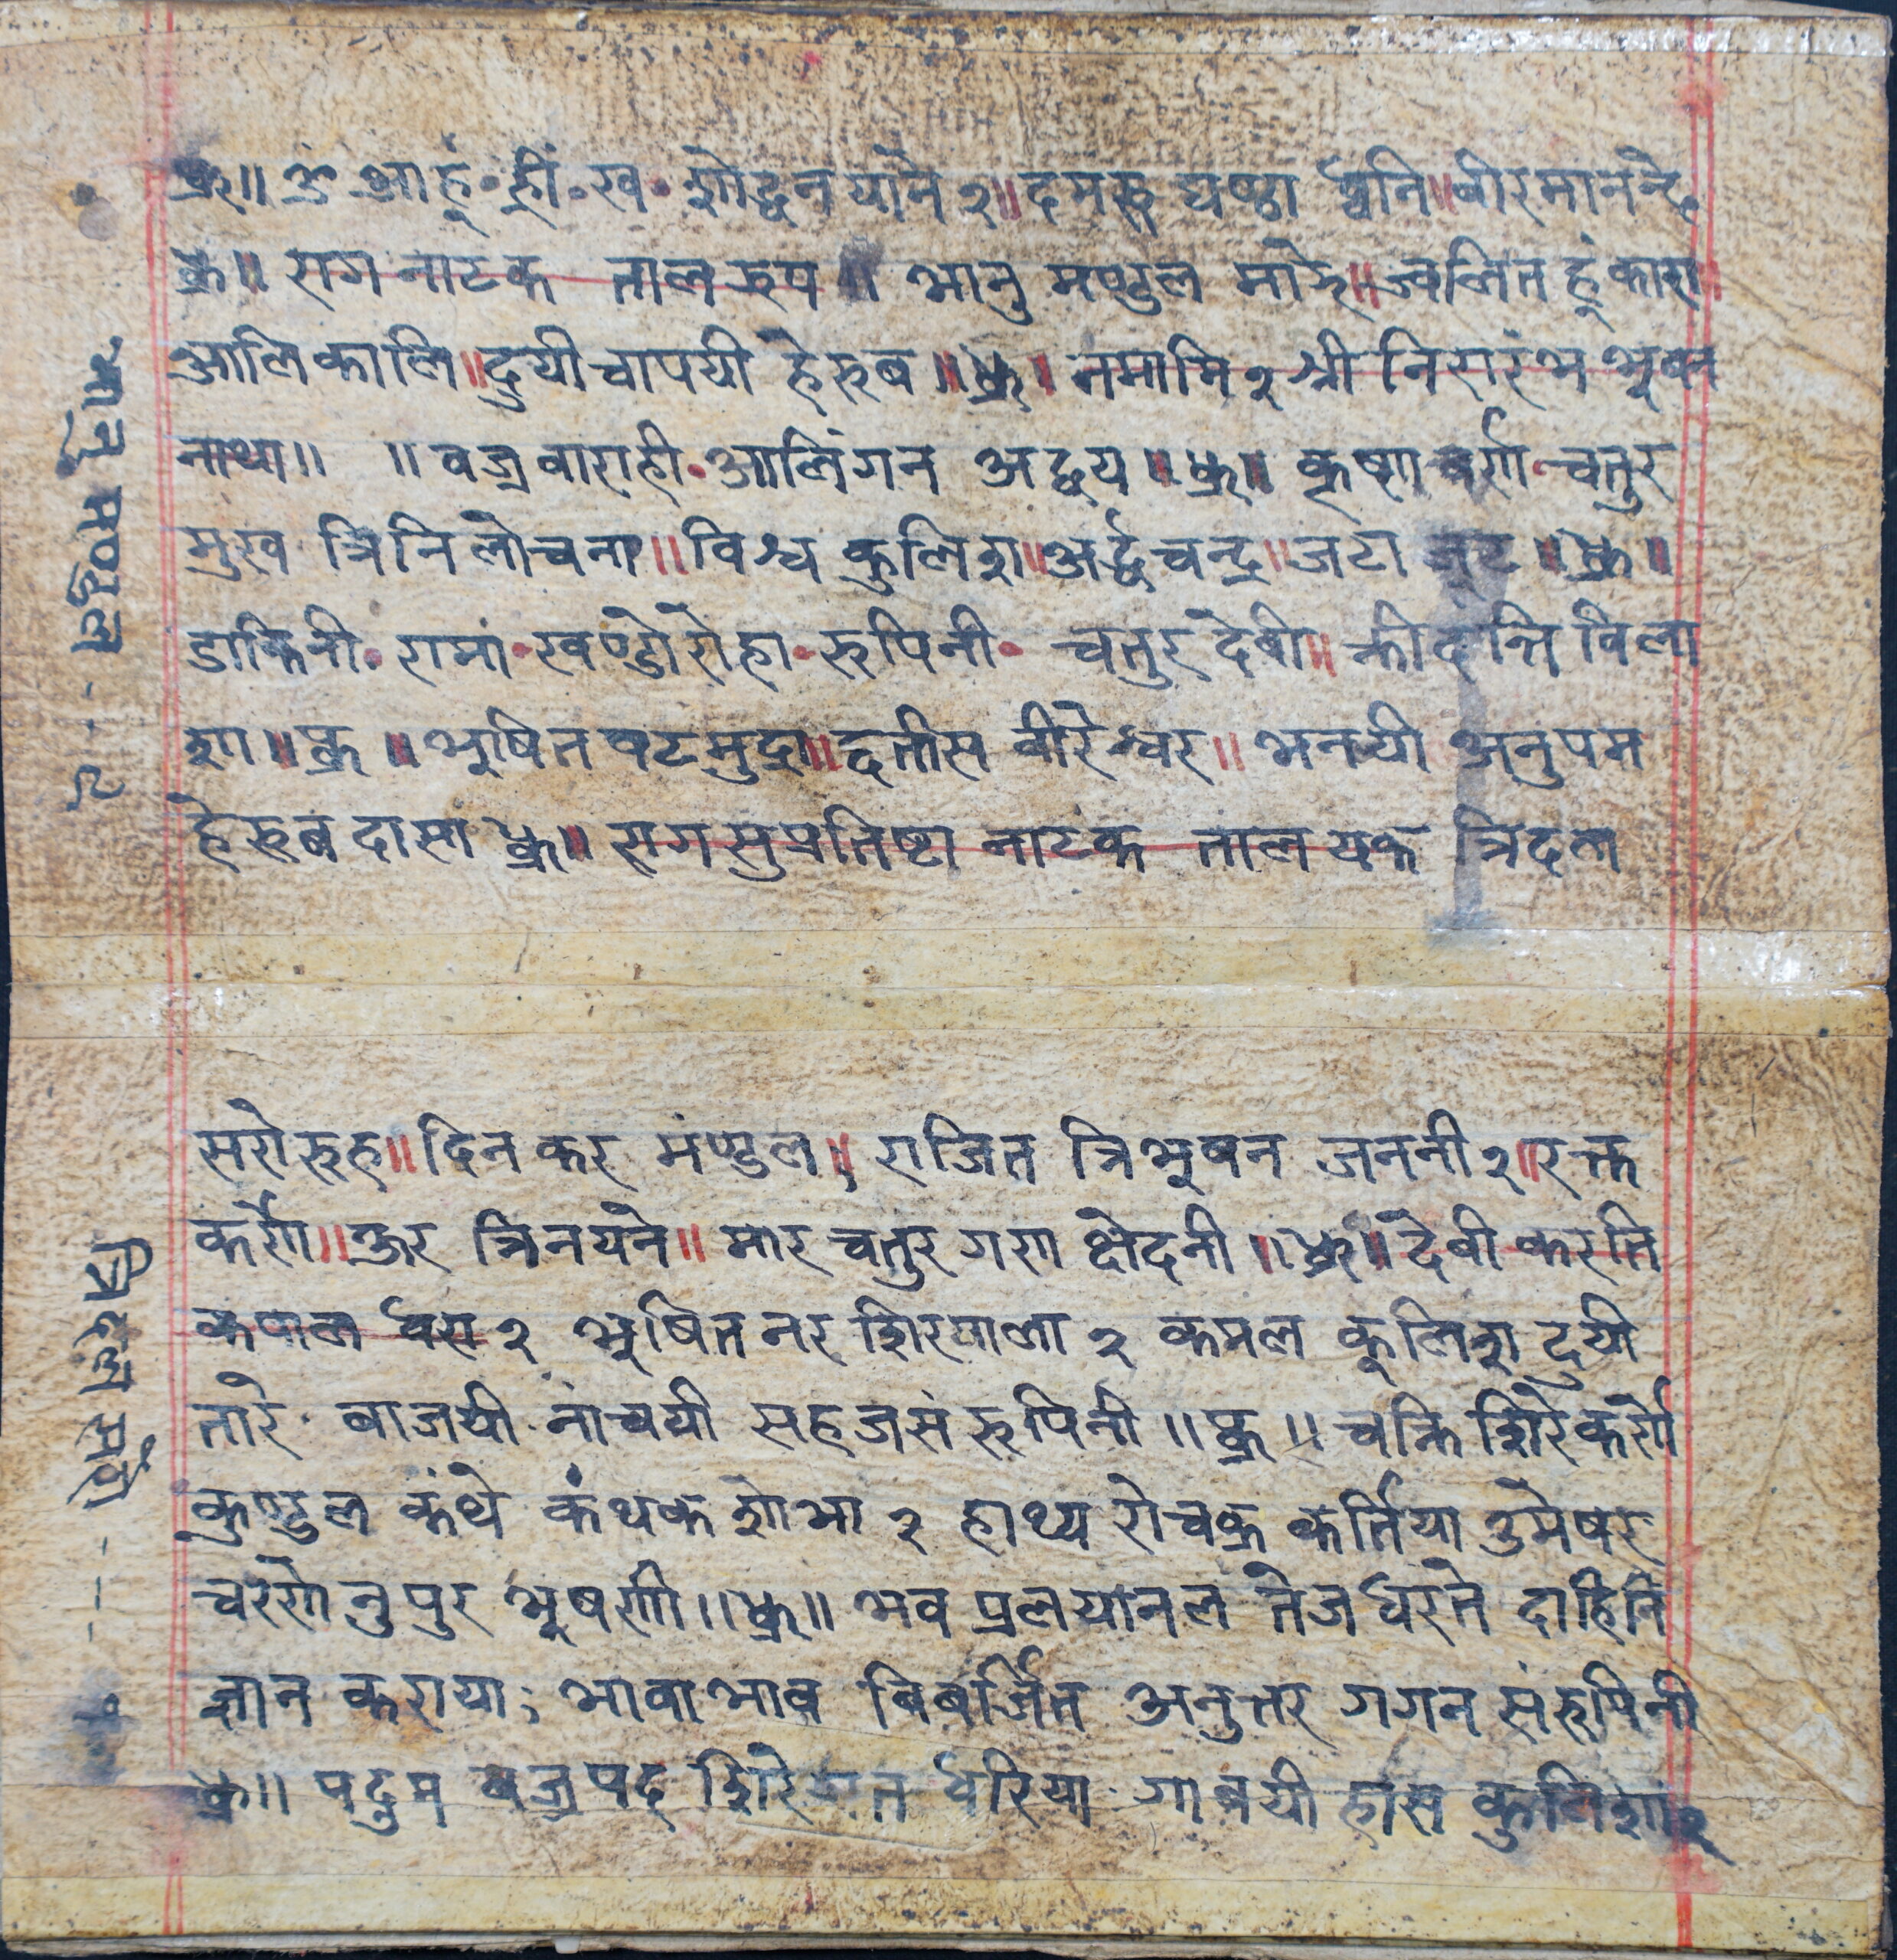 ध्रु॥ ॐ आहूं • ह्रीं • ख • शोद्धन याने २॥ दमरू घण्ठा ध्वनि॥ वीरमानन्दे
ध्रु॥ राग नाटक ताल झप॥ भानु मण्डुल माझे॥ ज्वलित हूं कारा॥
आलि कालि॥ दुयी चापयी हेरूब॥ ध्रु॥ नमामि २ श्री निरारंभ भूवन
नाथा॥ ॥ वज्रवाराही • आलिंगन अद्वय॥ ध्रु॥ कृष्ण वर्ण चतुर
मुख त्रिनि लोचना॥ विश्व कुलिश॥ अर्द्धचन्द्र॥ जटा जूट॥ ध्रु॥
डाकिनी • रामां • खण्डोरोहा • रूपिनी • चतुर देवी॥ क्रीदन्ति विला
शा॥ ध्रु॥ भूषित षटमुद्रा॥ छतीस वीरेश्वर॥ भनयी अनुपम
हेरूब दासा ध्रु॥ राग सुप्रतिष्टा नाटक ताल यक त्रिदल
सरोरूह॥ दिनकर मंण्डल॥ राजित त्रिभूवन जननी २॥ रक्त
कर्णे॥ ऊर त्रिनयने॥ मार चतुर गण क्षेदनी॥ ध्रु॥ देवी करति
कपाल धरा २ भूषित नर शिरमाला २ कमल कुलिश दुयी
तारे वाजयी नांचयी सहजसं रूपिनी॥ ध्रु॥ चक्रि शिरे कर्णे
कुण्डुल कंथे कंथक शोभा २ हाथ्य रोचक्र कर्तिया उमेषर
चरणे नुपुर भूषणी॥ ध्रु॥ भव प्रलयानल तेज धरते दाहिनि
ज्ञान कराया; भावाभाव बिबर्जित अनुत्तर गगन संरूपिनी
ध्रु॥ पदुम वज्रपद शिरे धरिया गावयी हास कुलिशा २
भानु मण्डुल - - - ८
त्रिदल सरो - - -